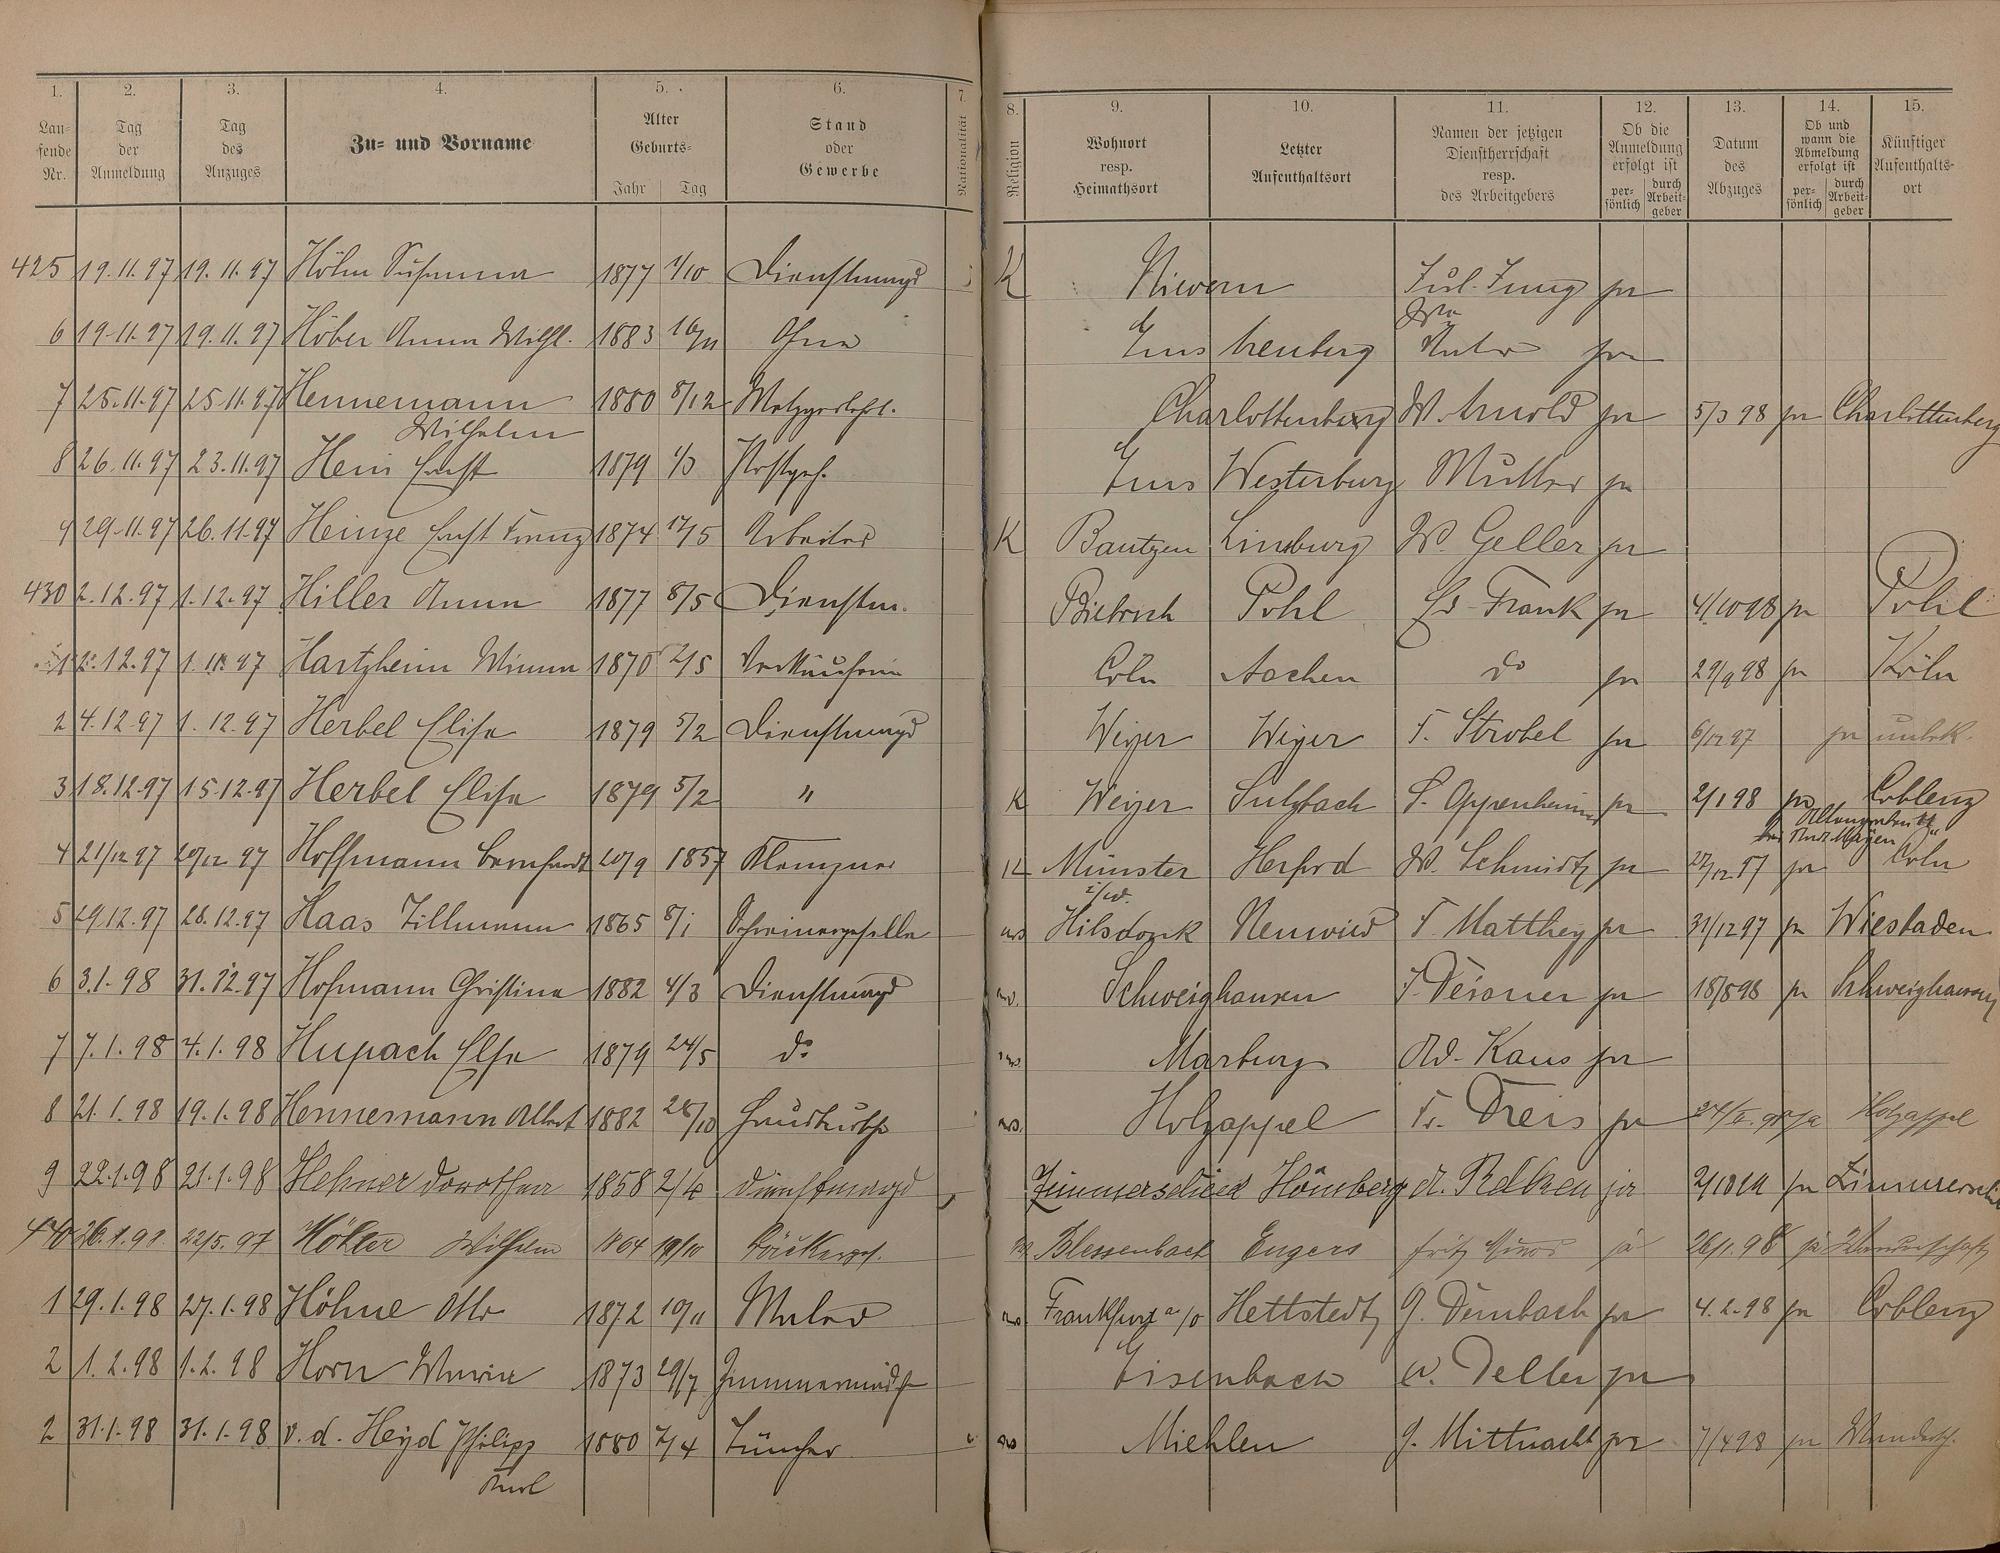 1. 2. 3. 4. 5. 6. 7. 8. 9. 10. 11. 12. 13. 14. 15.
Lau-
fende
Nr.
Tag
der
Anmeldung
Tag
des
Anzuges
Zu- und Vorname
Alter
Geburts-
Jahr Tag
Stand
oder
Gewerbe
Nationalität
Religion
Wohnort
resp.
Heimathsort
Letzter
Aufenthaltsort
Namen der jetzigen
Dienstherrschaft
resp.
des Arbeitgebers
Ob die
Anmeldung
erfolgt ist
per-
sönlich
durch
Arbeit-
geber
Datum
des
Abzuges
Ob und
wann die
Abmeldung
erfolgt ist
per-
sönlich
durch
Arbeit-
geber
Künftiger
Aufenthalts-
ort
425 19.11.97 19.11.97 Höhn Susanna 1877 1/10 Dienstmagd K Nievern Jul. Jung ja
6 19.11.97 19.11.97 Höber Anna Wilh. 1883 16/11 Ohne Ems Arenberg ja
7 25.11.97 25.11.97 Hennemann 1880 8/12 Metzgerlehrl. Charlottenburg W. Arnold ja 5/3 98 ja Charlottenberg
Wilhelm
8 26.11.97 23.11.97 Hein Ernst 1879 1/3 Postgeh. Ems Westerburg Müller ja
9 29.11.97 26.11.97 Heinze Ernst Franz 1874 17/5 Arbeiter K Bautzen Limburg W. Geller ja
430 2.12.97 1.12.97 Hiller Anna 1877 8/5 Dienstm. Biebrich Pohl Ed. Frank ja 4/10 98 ja Pohl
1 2.12.97 Hartzheim Minna 1870 2/5 Verkäuferin Cöln Aachen do ja 29/9 98 ja Köln
2 4.12.97 1.12.97 Herbel Elise 1879 5/2 Dienstmagd Weyer Weyer F. Strobel ja 6/12 97 ja unbek.
3 18.12.97 15.12.97 Herbel Elise 1879 5/2 " K Weyer Sulzbach S. Oppenheimer ja 2/1 98 ja Coblenz
4 21/12 97 20/12 97 Hoffmann Bernhardt 20/9 1857 Klempner K Münster Herford W. Schmidt ja 27/12 97 ja Cöln
i/W.
5 29.12.97 28.12.97 Haas Tillmann 1865 8/1 Schreinergeselle Hilsdonk Neuwied F. Matthey ja 31/12 97 ja Wiesbaden
6 3.1.98 31.12.97 Hofmann Christine 1882 4/3 Dienstmagd Schweighausen ja 18/8 98 ja Schweighausen
7 7.1.98 4.1.98 Hupach Else 1879 24/5 do Marburg Ad. Kaus ja
8 21.1.98 19.1.98 Hennemann Albert 1882 28/10 Hausbursche Holzappel Fr. Dreis ja ja Holzappel
9 22.1.98 21.1.98 Hehner Dorothea 1858 2/4 Dienstmagd Hömberg ja ja
440 26.1.98 22/5.97 Höhler Wilhelm 1864 19/10 Bäckerges. Blessenbach Engers Fritz ja 26/1.98 ja Wanderschaft
1 29.1.98 27.1.98 Höhne Otto 1872 10/11 Maler Frankfurt a/O Hettstedt G. Dembach ja 4.2.98 ja Coblenz
2 1.2.98 1.2.98 Horn Maria 1873 29/7 Zimmermädch Eisenbach W. Deller ja
2 31.1.98 31.1.98 v. d. Heyd Philipp 1880 7/4 Tüncher Miehlen G. Mittnacht ja 7/4 98 ja Wandersch.
Karl